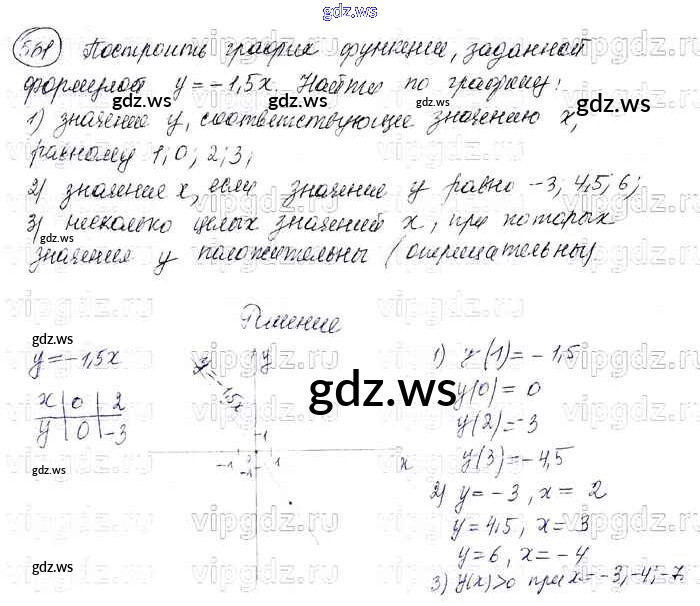 gdz.ws
561 Построить график функции, заданной
формулой y = -1,5x. Найти по графику:
1) значение y, соответствующее значению x,
равному 1; 0; 2; 3;
2) значение x, если значение y равно -3; 4,5; 6;
3) несколько целых значений x, при которых
значения y положительны (отрицательны)
Решение
y = -1,5x
x | 0 | 2
y | 0 | -3
y = -1,5x
y
1
-1 1 x
-1
1) y(1) = -1,5
y(0) = 0
y(2) = -3
y(3) = -4,5
2) y = -3, x = 2
y = 4,5, x = 3
y = 6, x = -4
3) y(x)>0 при x = -3; -4; -7
gdz.ws
gdz.ws
gdz.ws
gdz.ws
gdz.ws
gdz.ws
gdz.ws
gdz.ws
vipgdz.ru
vipgdz.ru
vipgdz.ru